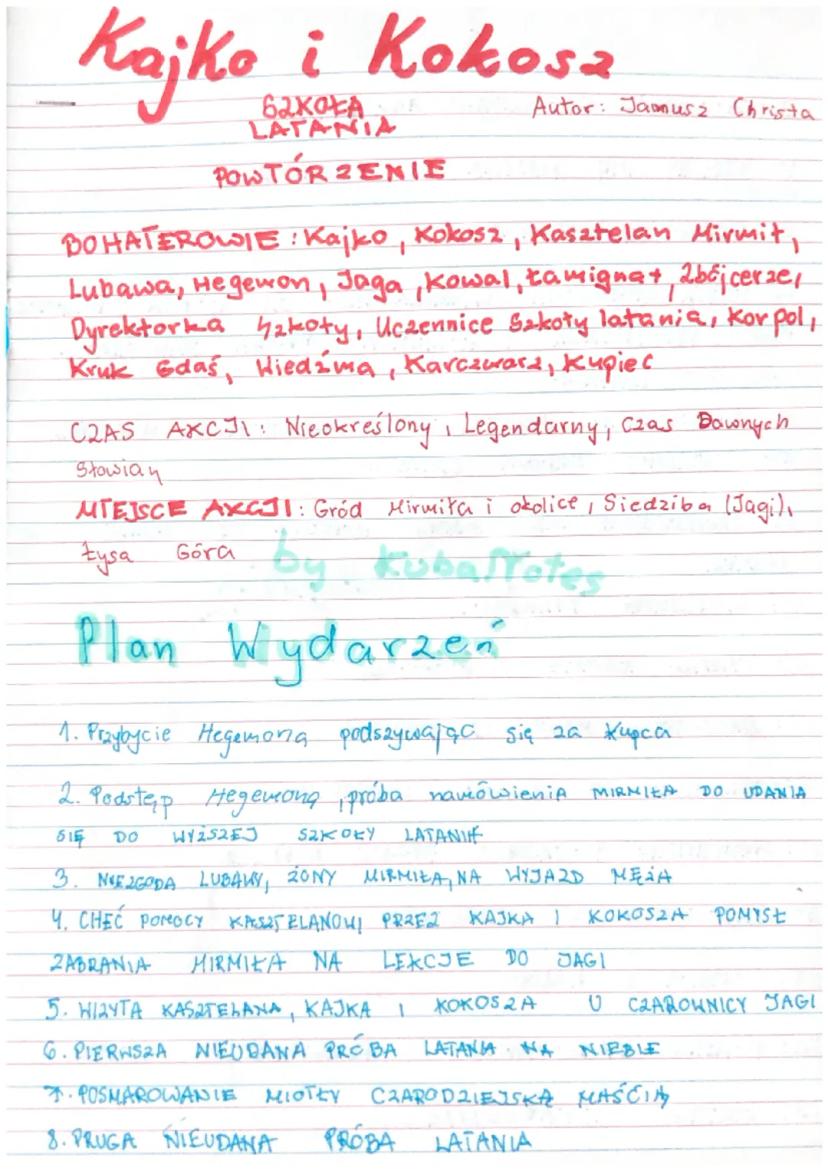 Kajko i Kokosz
SZKOŁA
LATANIA
Autor: Janusz Christa
POWTÓRZENIE
BOHATEROWIE: Kajko, Kokosz, Kasztelan Mirmił,
Lubawa, Hegemon, Jaga, Kowal, Łamignat, Zbójcerze,
Dyrektorka Szkoły, Uczennice Szkoły latania, Korpol,
Kruk Gdaś, Wiedźma, Karczmarz, Kupiec
CZAS AKCJI: Nieokreślony, Legendarny, Czas Dawnych
Słowian
MIEJSCE AKCJI: Gród Mirmiła i okolice, Siedziba (Jagi),
Łysa Góra
by KubaNotes
Plan Wydarzeń
1. Przybycie Hegemona podszywając się za Kupca
2. Podstęp Hegemona, próba namówienia MIRMIŁA DO UDANIA
SIĘ DO WYŻSZEJ SZKOŁY LATANIA
3. NIEZGODA LUBAWY, ŻONY MIRMIŁA, NA WYJAZD MĘŻA
4. CHĘĆ POMOCY KASZTELANOWI PRZEZ KAJKA I KOKOSZA POMYSŁ
ZABRANIA MIRMIŁA NA LEKCJE DO JAGI
5. WIZYTA KASZTELANA, KAJKA I KOKOSZA U CZAROWNICY JAGI
6. PIERWSZA NIEUDANA PRÓBA LATANIA NA NIEBIE
7. POSMAROWANIE MIOTŁY CZARODZIEJSKĄ MAŚCIĄ
8. DRUGA NIEUDANA PRÓBA LATANIA